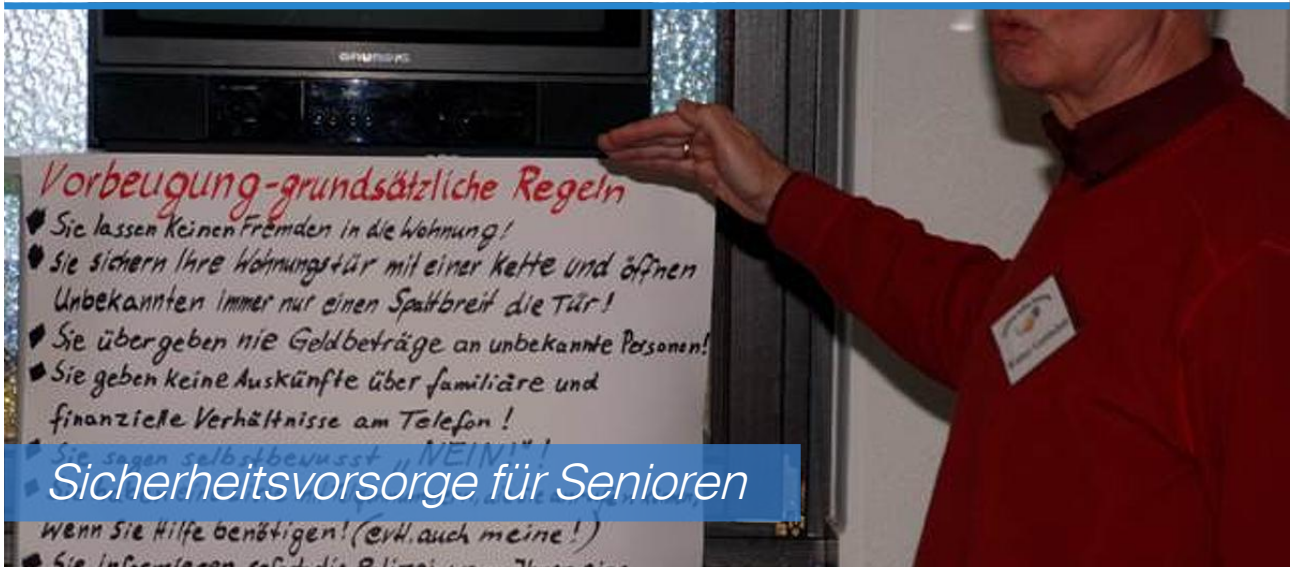 GRUNDIG
Vorbeugung-grundsätzliche Regeln
Sie lassen Keinen Fremden in die Wohnung!
Sie sichern Ihre Wohnungstür mit einer Kette und öffnen
Unbekannten immer nur einen Spaltbreit die Tür!
Sie übergeben nie Geldbeträge an unbekannte Personen!
Sie geben keine Auskünfte über familiäre und
finanzielle Verhältnisse am Telefon!
Sie sagen selbstbewusst „NEIN!"!
Sicherheitsvorsorge für Senioren
wenn Sie Hilfe benötigen! (evtl. auch meine!)
Sie informieren sofort die Polizei